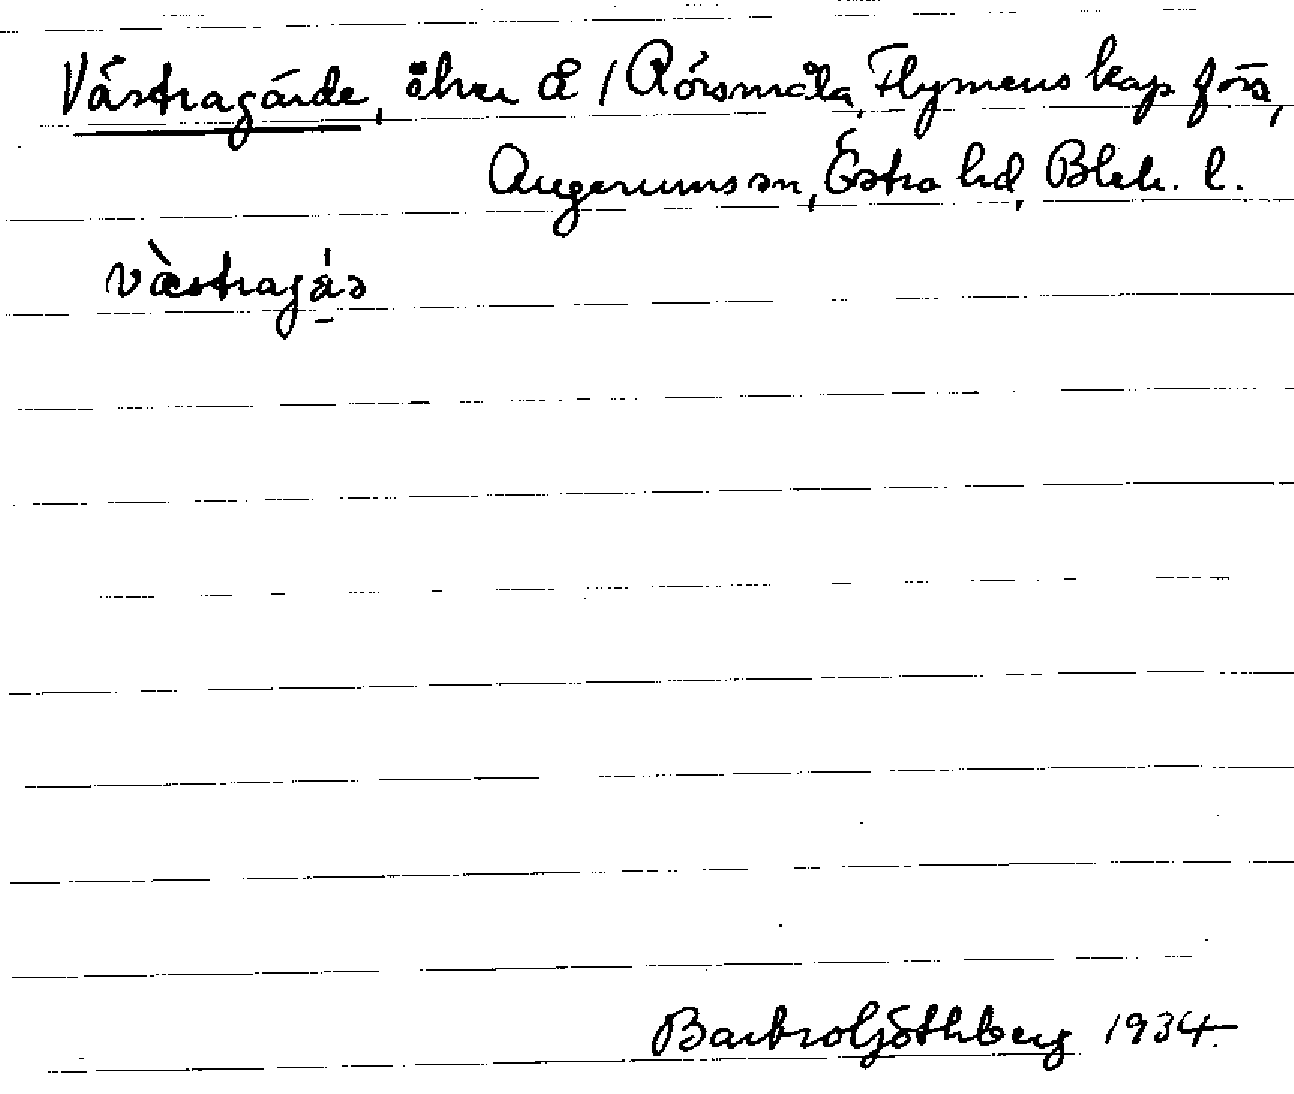 Västragärde, åker Å / Rörsmåla, Flymens kap förs,
Augerums sn, Östra hd, Blek. l.
vàstragás
Barbro Götherberg 1934.